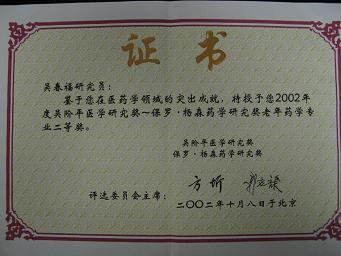 证书
吴春福研究员：
鉴于您在医药学领域的突出成就，特授予您2002年
度吴阶平医学研究奖～保罗·杨森药学研究奖老年药学专
业二等奖。
吴阶平医学研究奖
保罗·杨森药学研究奖
评选委员会主席：
二〇〇二年十月八日于北京